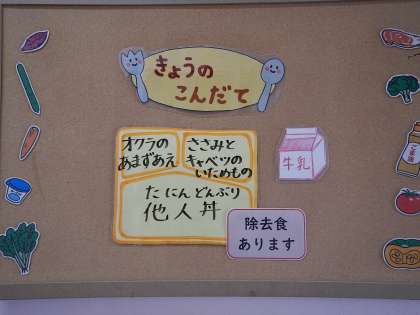 きょうの
こんだて
オクラの
あまずあえ
ささみと
キャベツの
いためもの
たにんどんぶり
他人丼
牛乳
除去食
あります